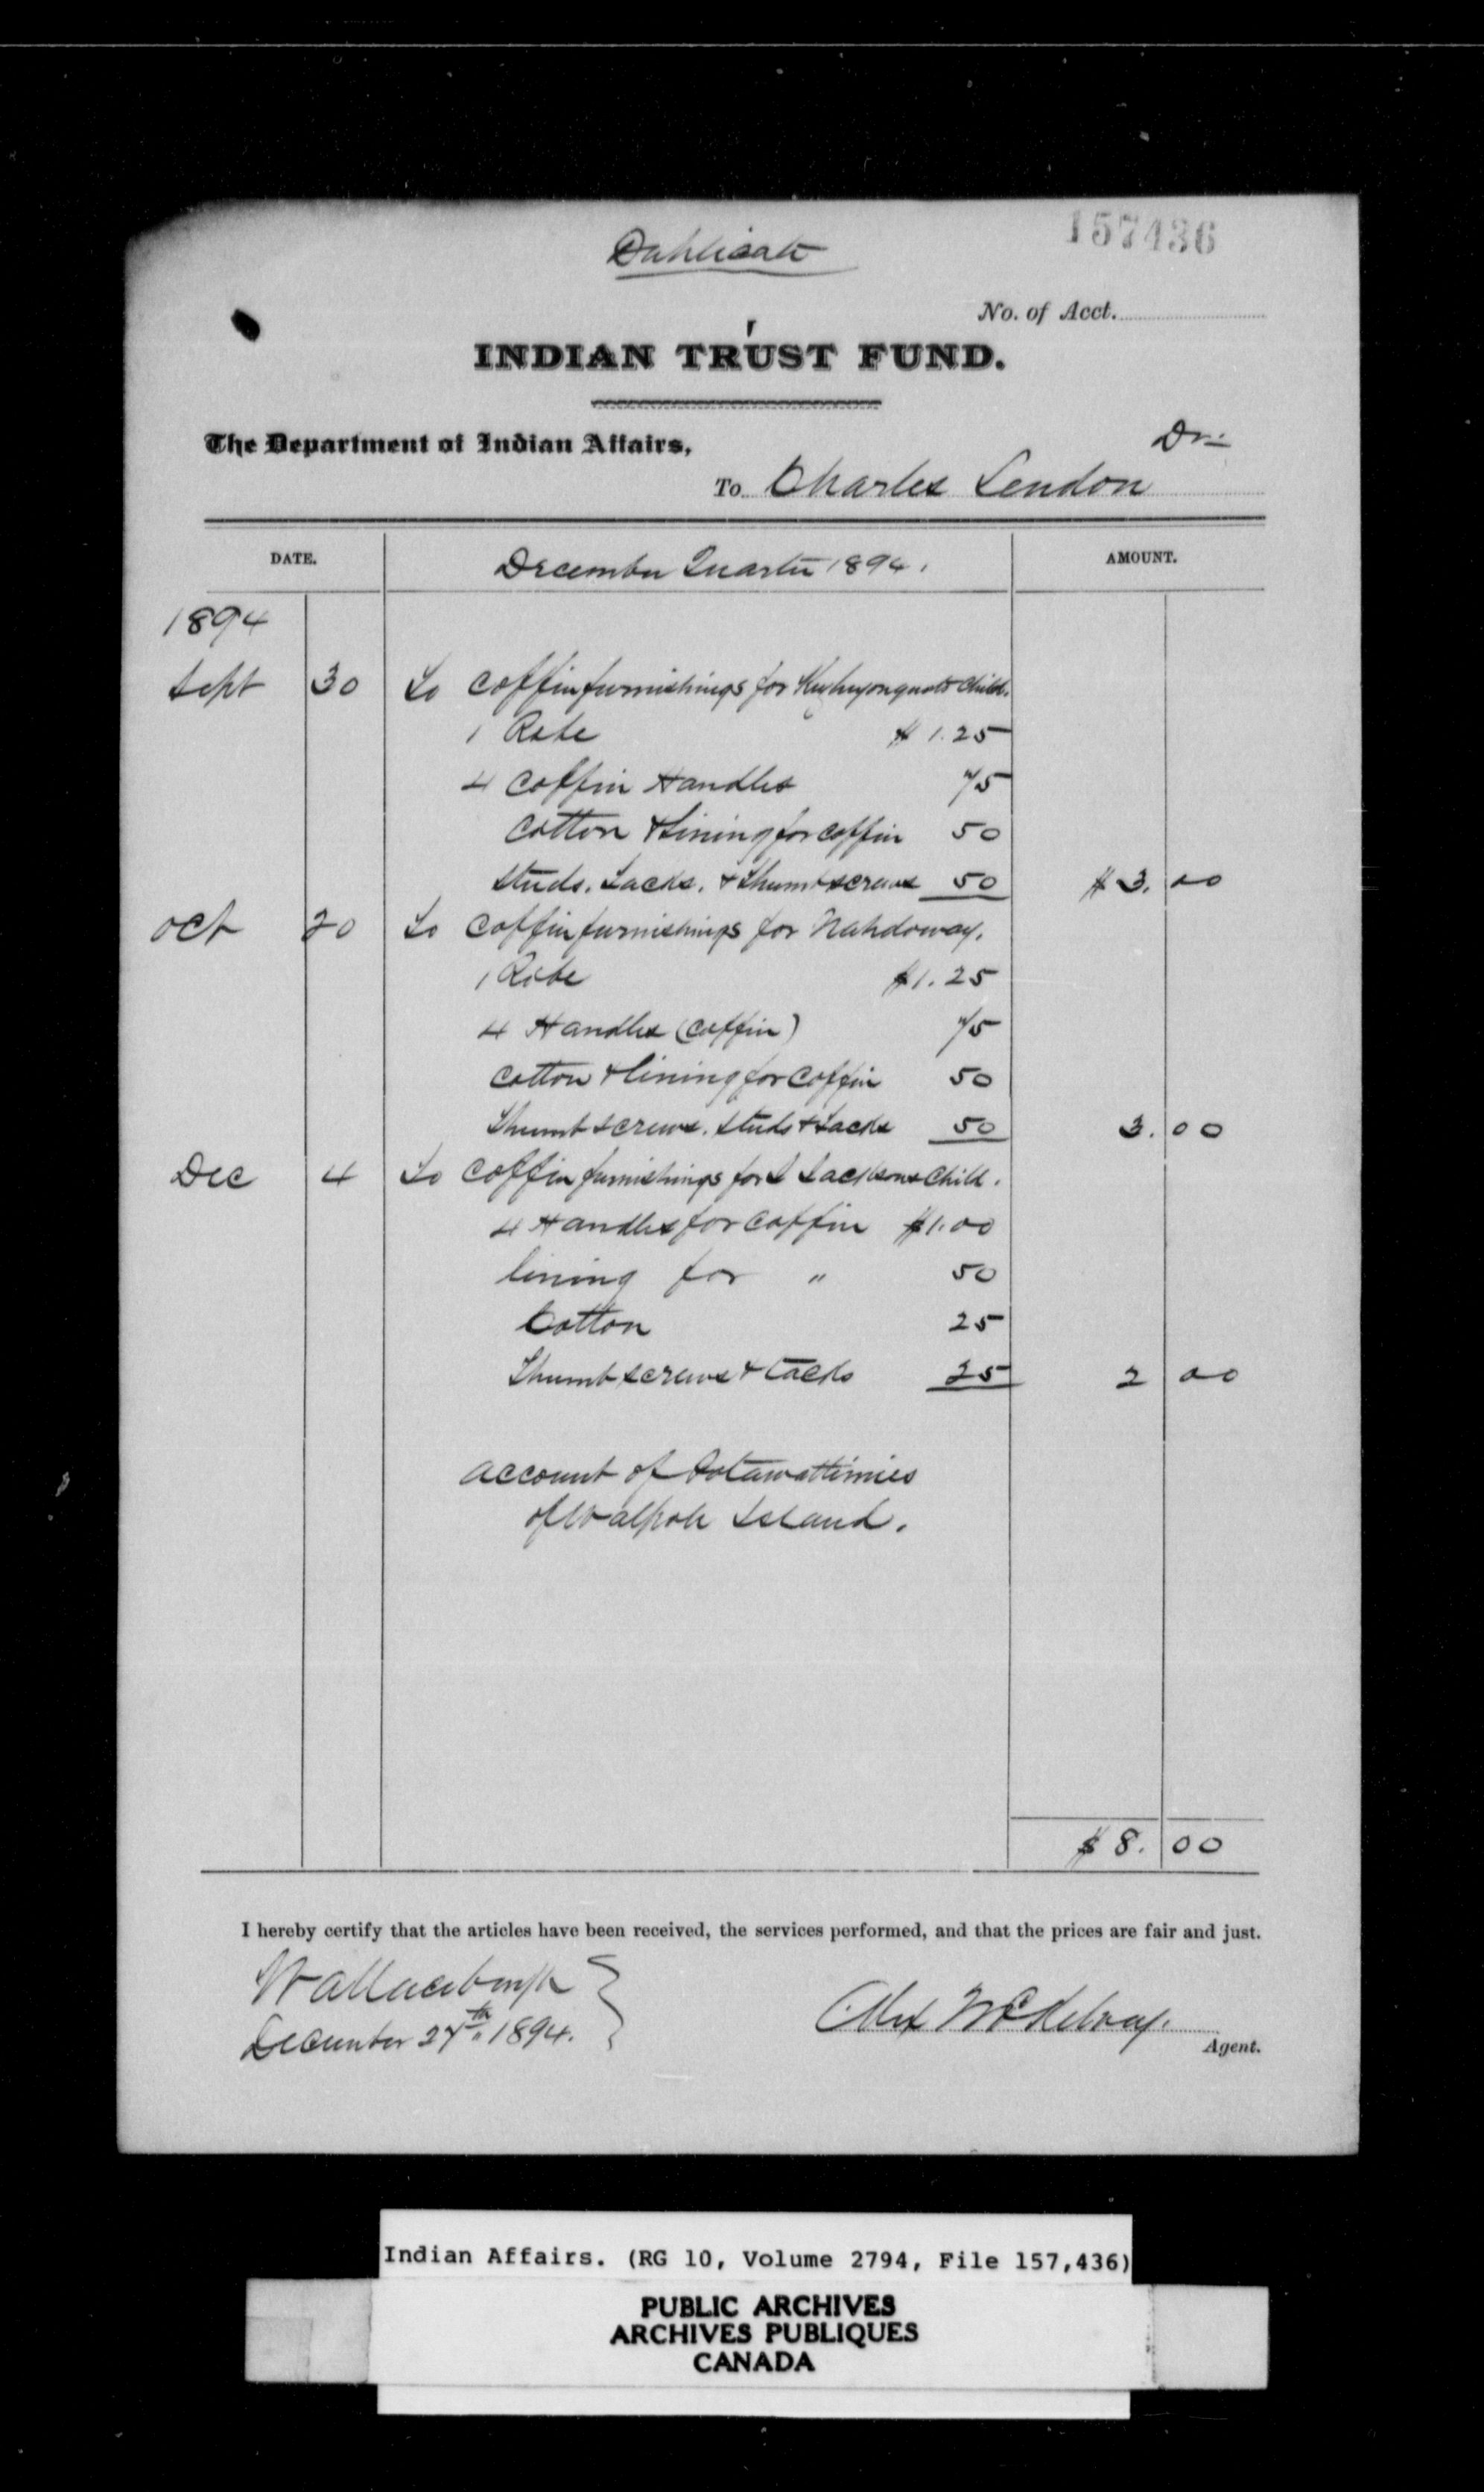 157436
Duplicate
No. of Acct.
INDIAN TRUST FUND.
The Department of Indian Affairs, Dr:
To Charles Lendon
DATE. December Quarter 1894. AMOUNT.
1894
Sept 30 To coffin furnishings for Child.
1 Robe $1.25
4 coffin Handles 75
Cotton & Lining for coffin 50
Studs. Tacks. & Thumbscrews 50 $3.00
Oct 20 To coffin furnishings for Nahdoway.
1 Robe $1.25
4 Handles (coffin) 75
Cotton & lining for coffin 50
Thumb screws. studs & Tacks 50 3.00
Dec 4 To coffin furnishings for Jacksons Child.
4 Handles for coffin $1.00
lining for " 50
Cotton 25
Thumb screws & tacks 25 2 00
account of Potawattimies
of Walpole Island.
$8.00
I hereby certify that the articles have been received, the services performed, and that the prices are fair and just.
Wallaceburgh
December 27th 1894.
Alex McKelvey.
Agent.
Indian Affairs. (RG 10, Volume 2794, File 157,436)
PUBLIC ARCHIVES
ARCHIVES PUBLIQUES
CANADA